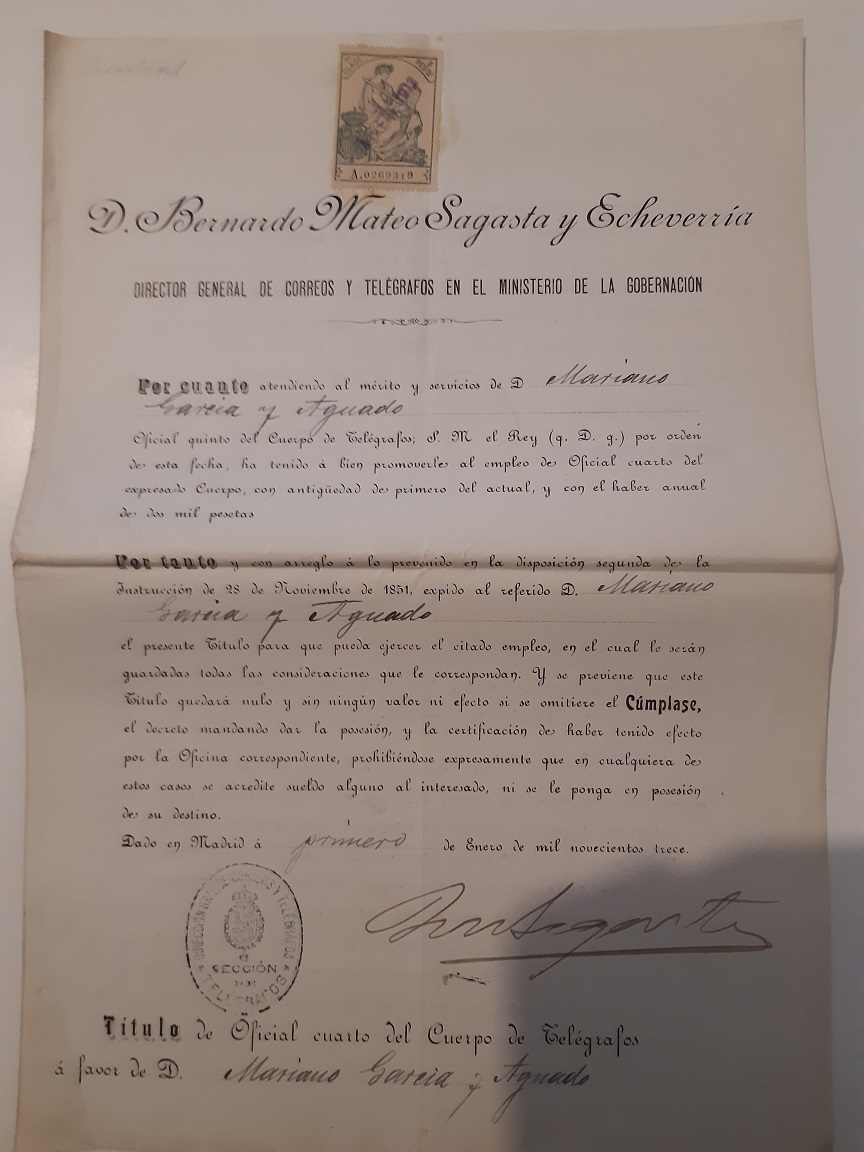 A.0269319
D. Bernardo Mateo Sagasta y Echeverría
DIRECTOR GENERAL DE CORREOS Y TELÉGRAFOS EN EL MINISTERIO DE LA GOBERNACIÓN
Por cuanto atendiendo al mérito y servicios de D Mariano
Garcia y Aguado
Oficial quinto del Cuerpo de Telégrafos; S. M el Rey (q. D. g.) por orden
de esta fecha, ha tenido á bien promoverle al empleo de Oficial cuarto del
expresado Cuerpo, con antigüedad de primero del actual, y con el haber anual
de dos mil pesetas
Por tanto y con arreglo á lo prevenido en la disposición segunda de la
Instrucción de 28 de Noviembre de 1851, expido al referido D. Mariano
Garcia y Aguado
el presente Título para que pueda ejercer el citado empleo, en el cual le serán
guardadas todas las consideraciones que le correspondan. Y se previene que este
Título quedará nulo y sin ningún valor ni efecto si se omitiere el Cúmplase,
el decreto mandando dar la posesión, y la certificación de haber tenido efecto
por la Oficina correspondiente, prohibiéndose expresamente que en cualquiera de
estos casos se acredite sueldo alguno al interesado, ni se le ponga en posesión
de su destino.
Dado en Madrid á primero de Enero de mil novecientos trece.
CORREOS Y TELÉGRAFOS
SECCIÓN
DE
TELÉGRAFOS
Título de Oficial cuarto del Cuerpo de Telégrafos
á favor de D. Mariano Garcia y Aguado